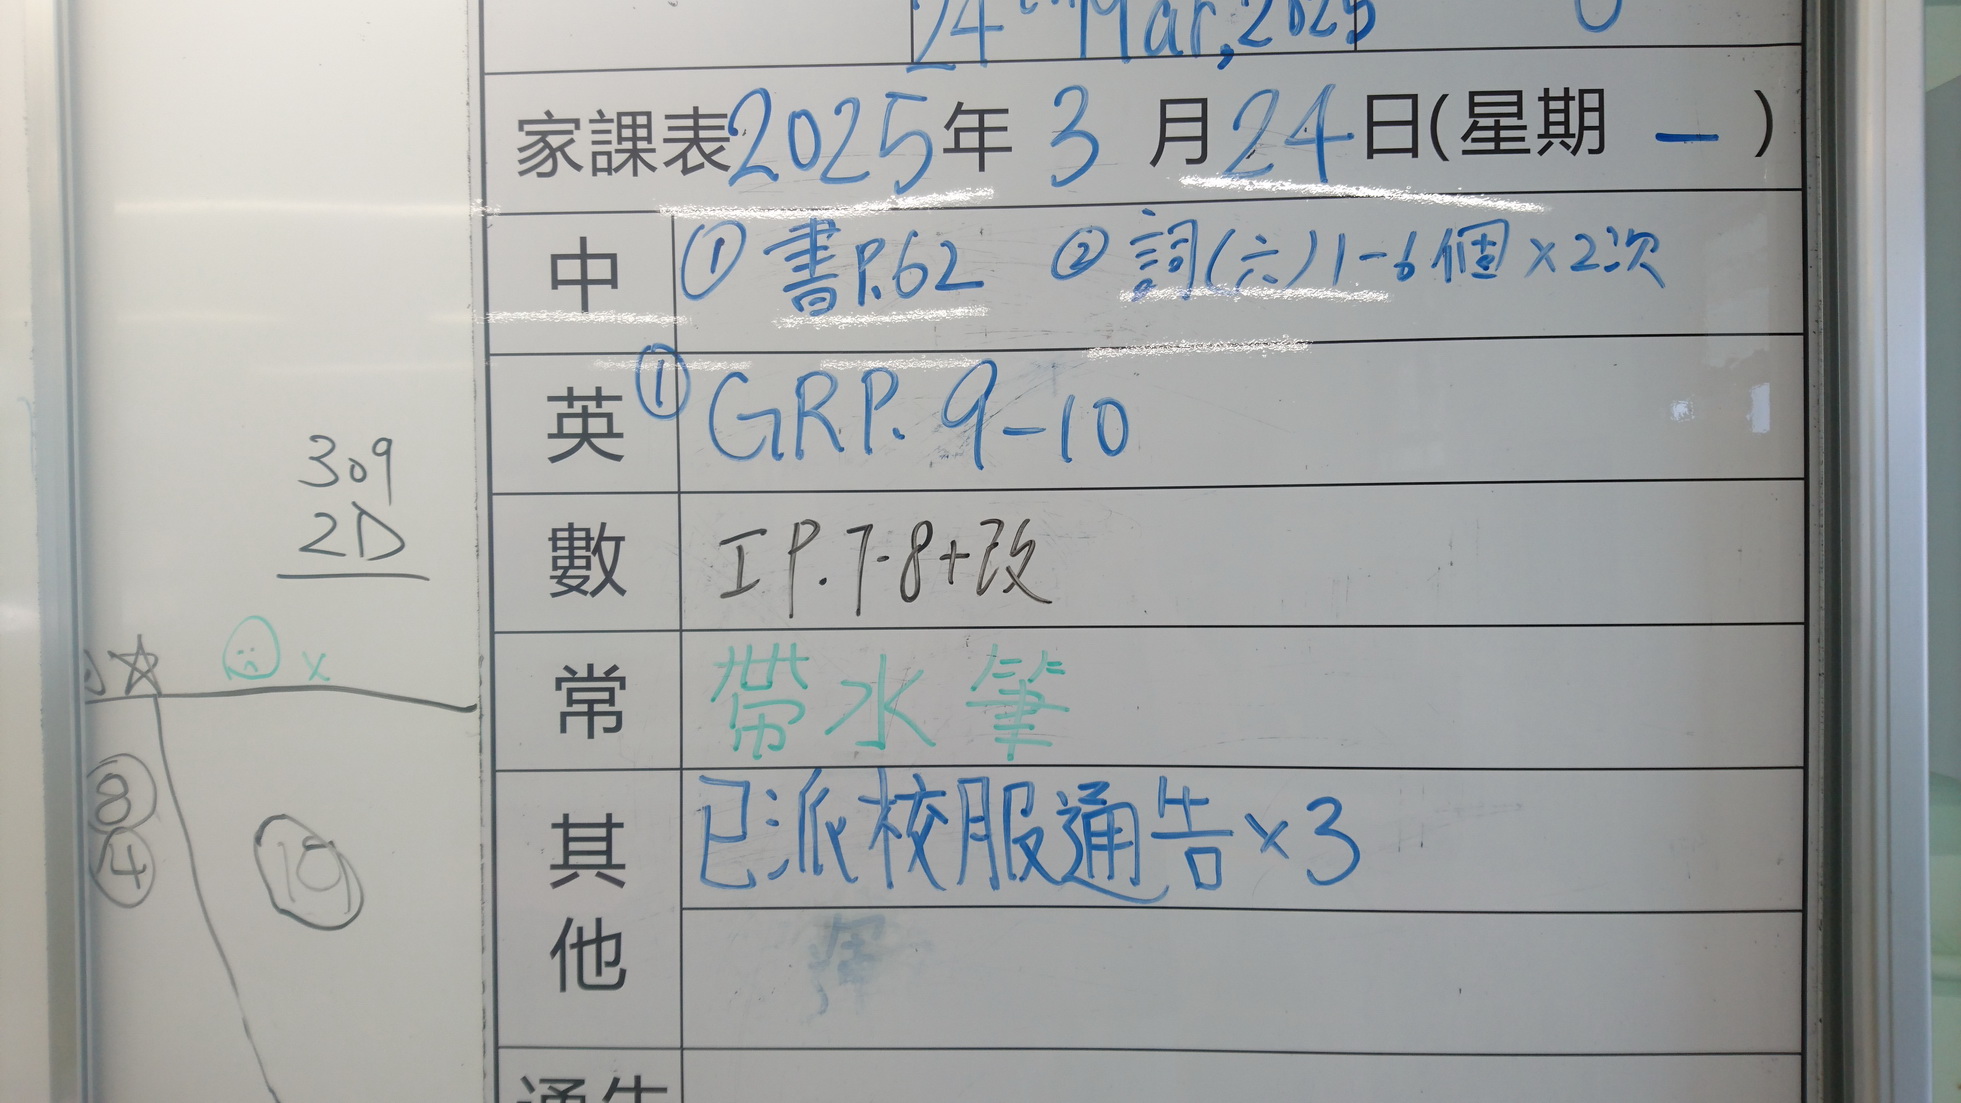 24th Mar, 2025
家課表2025年 3 月24日(星期 一 )
中 ① 書P.62 ② 詞(六)1-6個×2次
英 ① GRP. 9-10
數 工P.7-8+改
常 帶水筆
其他 已派校服通告×3
通告
309
2D
☆ ☹ x
⑧
④
⑲